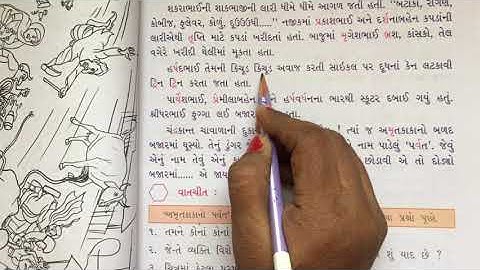 શકરાભાઈની શાકભાજીની લારી ધીમે ધીમે આગળ જતી હતી. "બટાકા, રીંગણ,
કોબીજ, ફુલેવર, કોળું, દુઉઉઉધી....." નજીકમાં પ્રકાશભાઈ અને દર્શનાબહેન કપડાંની
લારીમાંથી તૃપ્તિ માટે કપડાં ખરીદતાં હતાં. બાજુમાં મૃગેશભાઈ બ્રશ, કાંસકો, તેલ
વગેરે ખરીદી થેલીમાં મૂકતા હતા.
હર્ષદભાઈ તેમની કિચૂડ કિચૂડ અવાજ કરતી સાઇકલ પર દૂધનાં કેન લટકાવી
ટ્રિન ટ્રિન કરતા જતા હતા.
પાર્થેશભાઈ, પ્રેમીલાબહેન અને હર્ષવર્ધનના ભારથી સ્કૂટર દબાઈ ગયું હતું.
શ્રીધરભાઈ ફુગ્ગા લઈ બજારમાં
ચંદ્રકાન્ત ચાવાળાની દુકા ત્યાં જ અમૃતકાકાનો બળદ
બજારમાં ઘૂસ્યો. તેનું ડુંગર નામ પાડેલું 'પર્વત'. જેવું
એનું નામ તેવું એનું છોડાવી એ તો દોડ્યો
બજારમાં..... એ જાય
વાતચીત :
'અમૃતકાકાનો પર્વત' પ્રશ્નો પૂછો.
૧. તમને કોનાં કોનાં
૨. જે-તે વ્યક્તિ વિશે શું યાદ છે ?
૩. ચિત્રમાં કેટલા